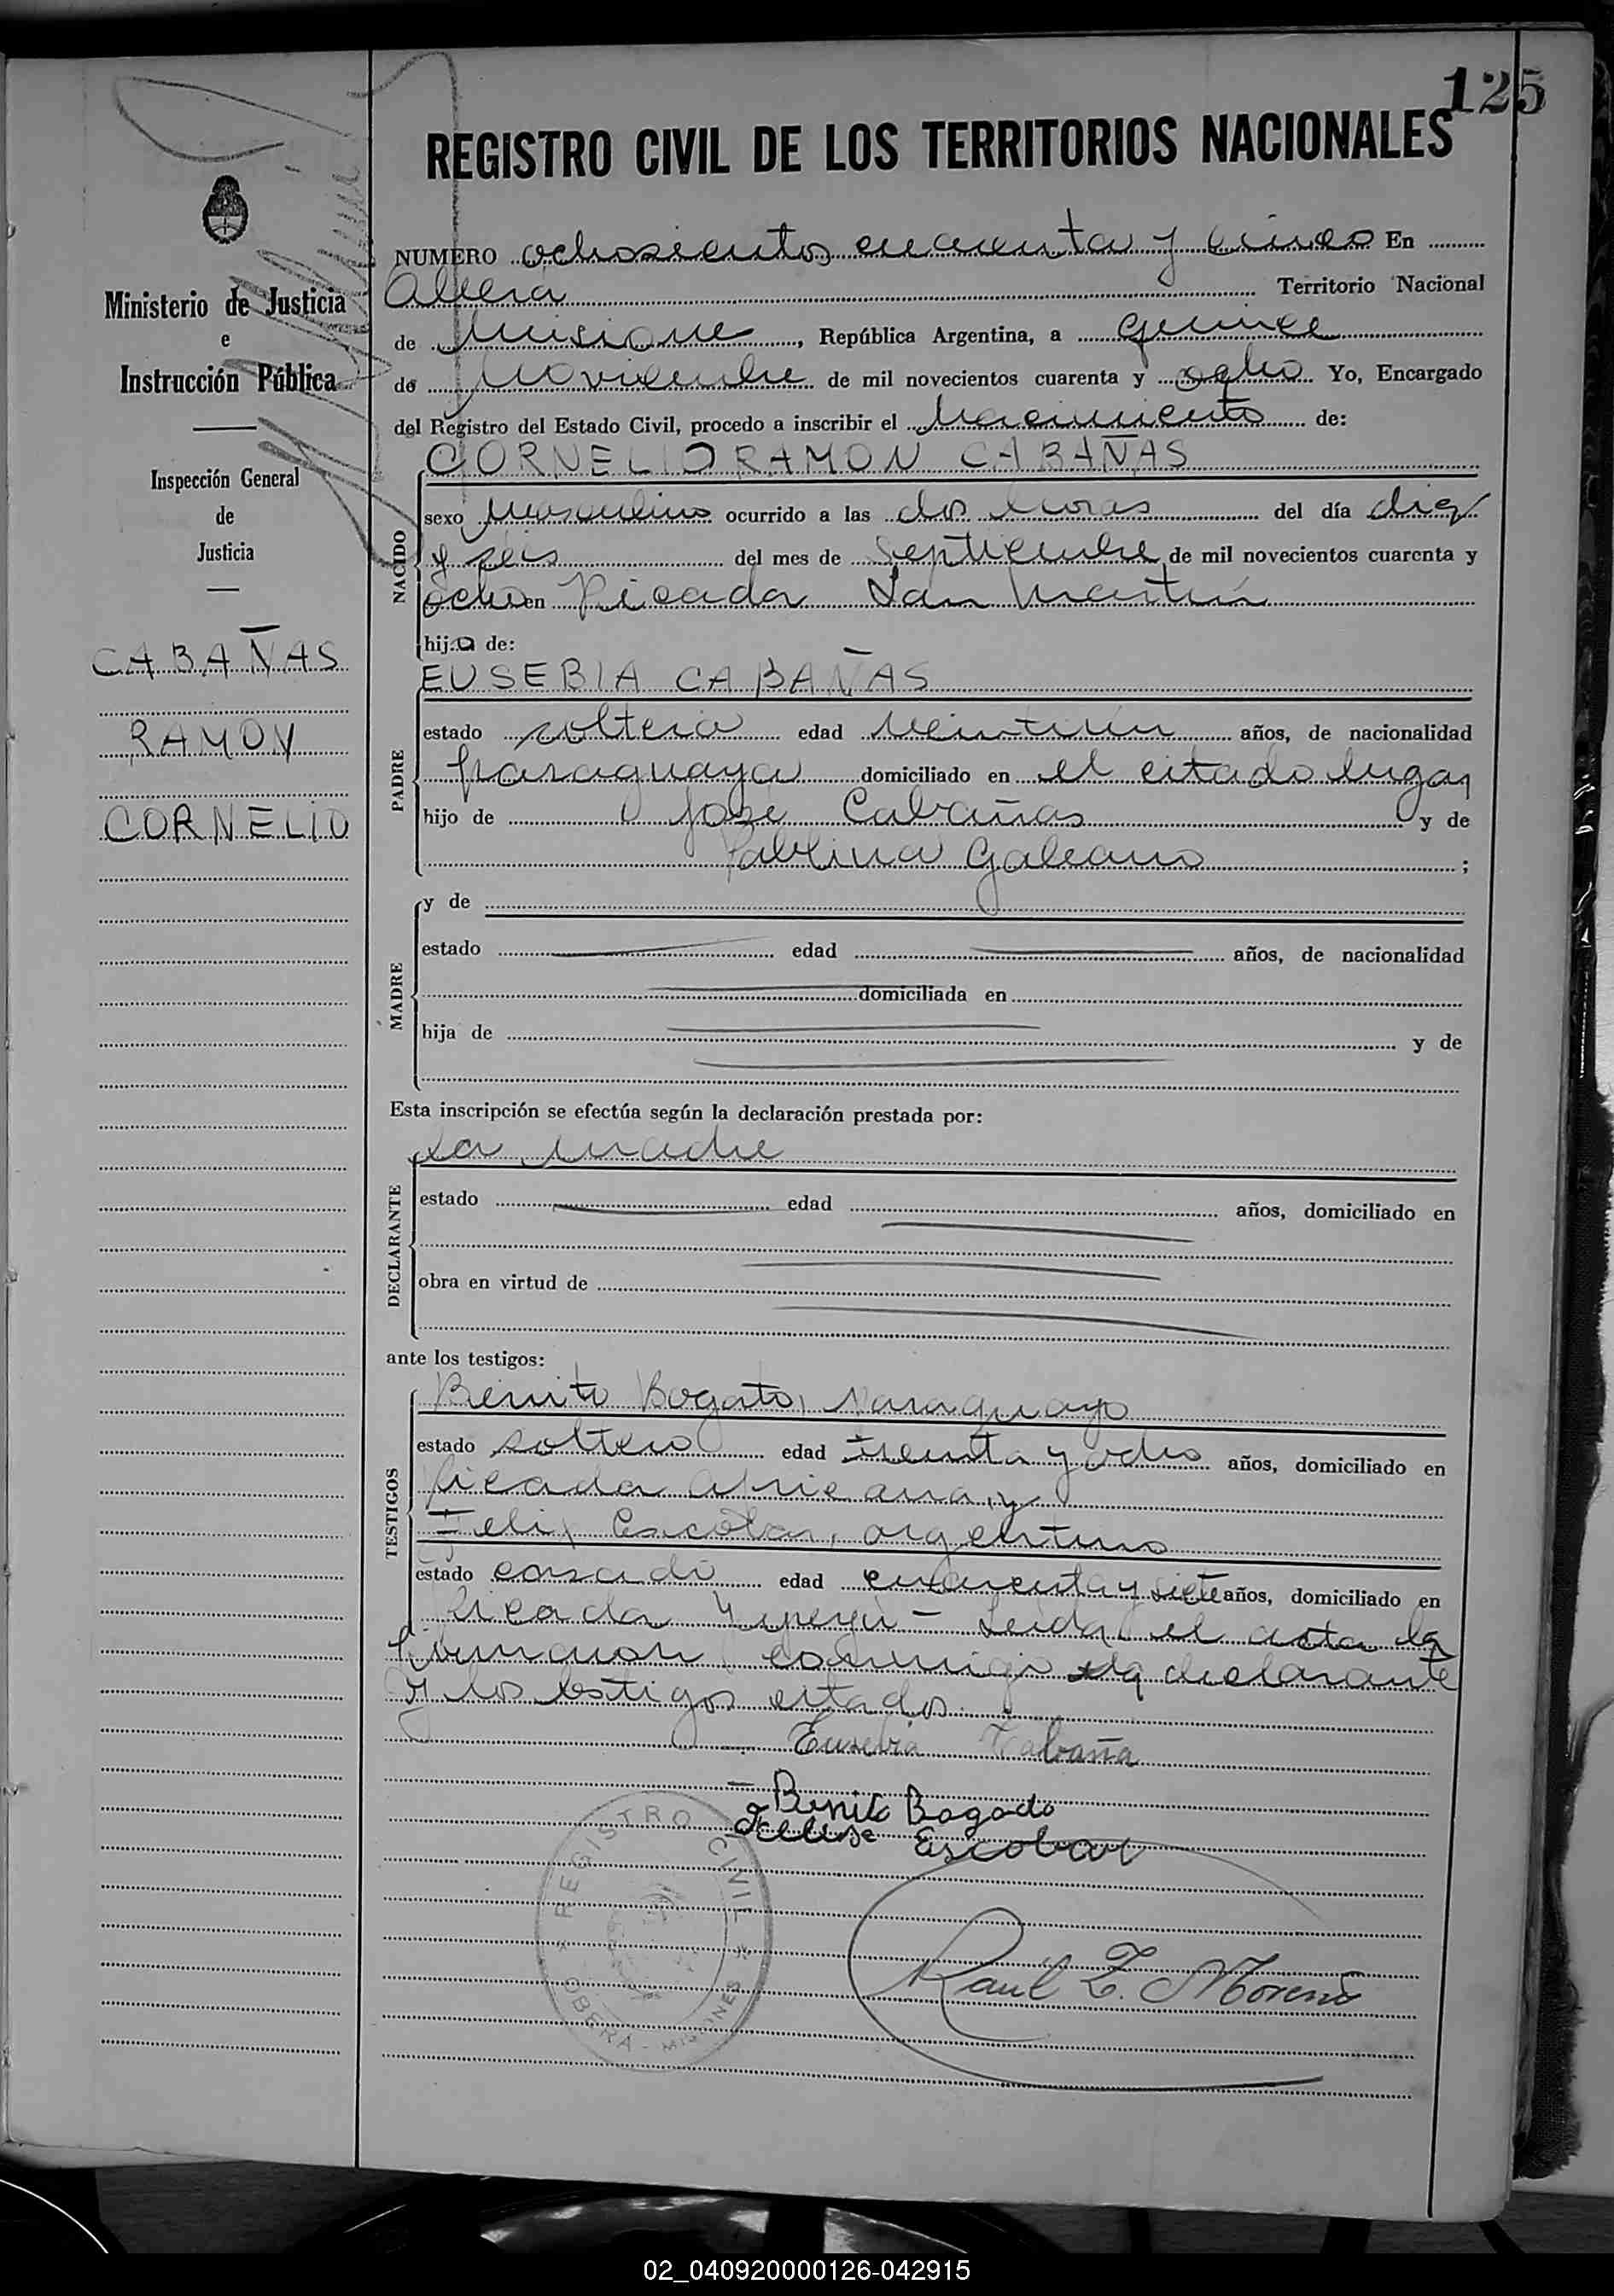 125
REGISTRO CIVIL DE LOS TERRITORIOS NACIONALES
Ministerio de Justicia
e
Instrucción Pública
Inspección General
de
Justicia
CABAÑAS
RAMON
CORNELIO
NUMERO ochosientos cuarenta y cinco En
Territorio Nacional
de Misiones, República Argentina, a quince
de Noviembre de mil novecientos cuarenta y ocho Yo, Encargado
del Registro del Estado Civil, procedo a inscribir el Nacimiento de:
CORNELIO RAMON CABAÑAS
NACIDO
sexo Masculino ocurrido a las dos horas del día diez
y seis del mes de Septiembre de mil novecientos cuarenta y
ocho en Picada San Martín
hijo de:
EUSEBIA CABAÑAS
PADRE
estado soltera edad veintiún años, de nacionalidad
paraguaya domiciliado en el citado lugar
hijo de José Cabañas y de
Pablina Galeano ;
MADRE
y de
estado edad años, de nacionalidad
domiciliada en
hija de y de
Esta inscripción se efectúa según la declaración prestada por:
La madre
DECLARANTE
estado edad años, domiciliado en
obra en virtud de
ante los testigos:
TESTIGOS
Benito Bogato, Paraguayo
estado soltero edad treinta y ocho años, domiciliado en
Picada Africana, y
Felix Escobar, argentino
estado casado edad cuarenta y siete años, domiciliado en
Picada Yapeyú - Leida el acta la
firmaron conmigo la declarante
y los testigos citados.
Eusevia Cabaña
Benito Bogado
Escobar
Raúl E. Moreno
REGISTRO CIVIL
OBERA - MISIONES
02_040920000126-042915